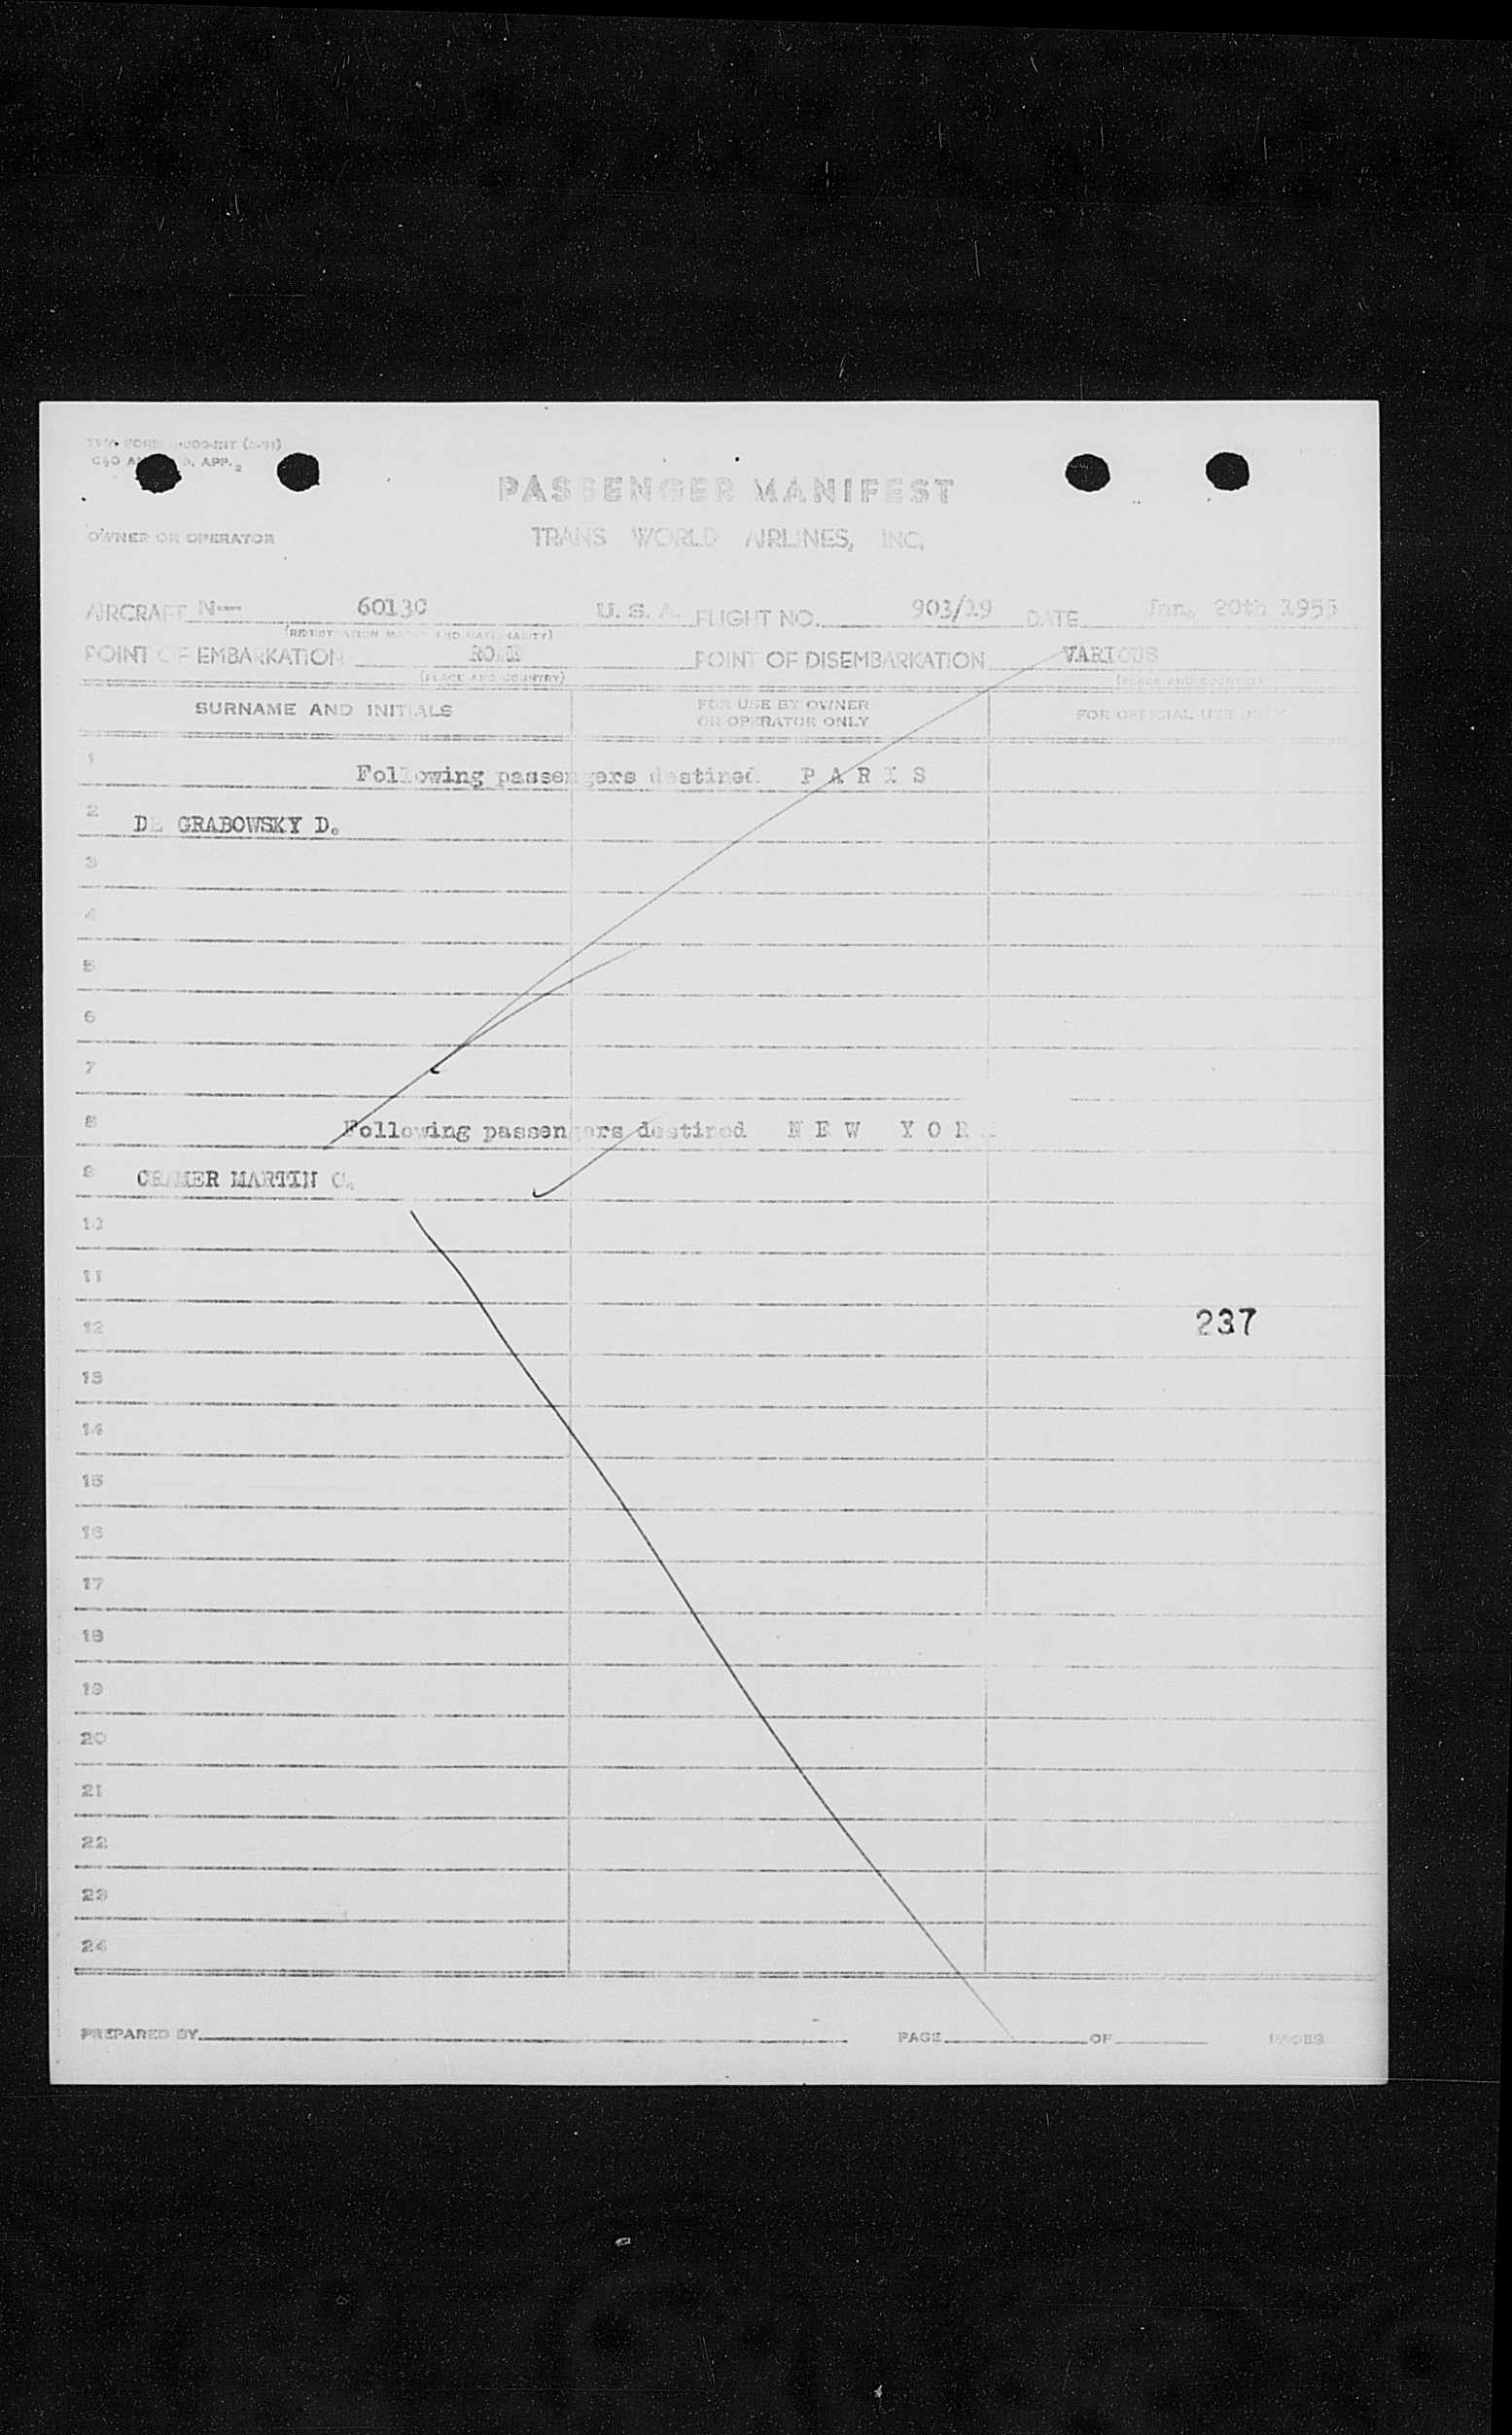 PASSENGER MANIFEST
OWNER OR OPERATOR TRANS WORLD AIRLINES, INC.
AIRCRAFT N— 6013C U. S. A. FLIGHT NO. 903/19 DATE Jan. 20th 1955
(REGISTRATION MARKS AND NATIONALITY)
POINT OF EMBARKATION ROME POINT OF DISEMBARKATION VARIOUS
(PLACE AND COUNTRY) (PLACE AND COUNTRY)
SURNAME AND INITIALS FOR USE BY OWNER OR OPERATOR ONLY FOR OFFICIAL USE ONLY
1 Following passengers destined P A R I S
2 DE GRABOWSKY D.
3
4
5
6
7
8 Following passengers destined N E W Y O R K
9 CRAMER MARTIN C.
10
11
12 237
13
14
15
16
17
18
19
20
21
22
23
24
PREPARED BY PAGE OF PAGES